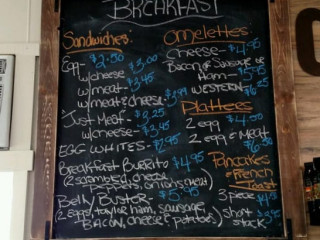 BREAKFAST
Sandwiches:
Egg - $2.50
w/cheese $3.00
w/meat - $3.45
w/meat & cheese - $3.99
Just Meat - $2.25
w/cheese - $3.45
EGG WHITES - $2.95
Breakfast Burrito $4.95
(2 scrambled, cheese,
peppers, onions & meat)
Belly Buster - $5.45
(2 eggs, taylor ham, sausage,
BACON, cheese & potatoes)
Omelettes
Cheese - $4.50
Bacon or Sausage or
Ham - $5.95
WESTERN $6.25
Platters
2 egg $4.50
2 egg & Meat
$6.50
Pancakes
or French
Toast
3 piece
Short
stack